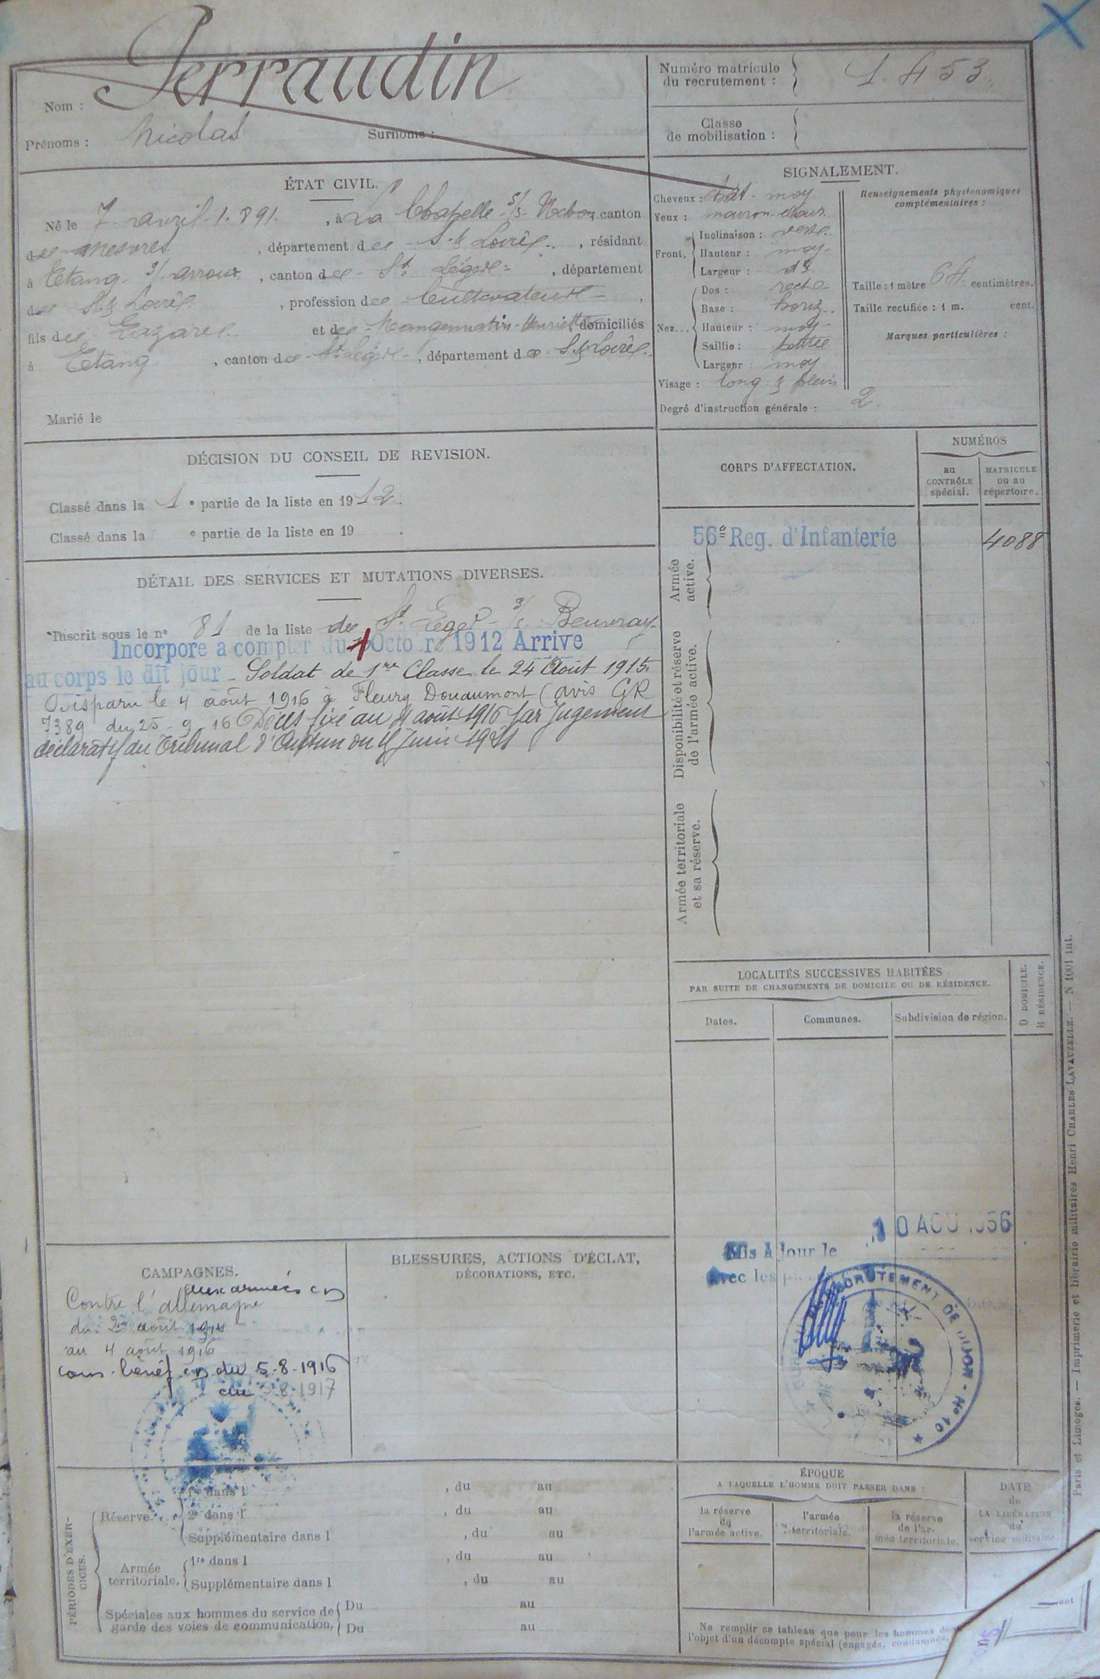 Nom : Perraudin
Prénoms : Nicolas Surnoms :
Numéro matricule du recrutement : 1.453.
Classe de mobilisation :
ÉTAT CIVIL.
Né le 7 avril 1.891. , à La Chapelle s/s Uchon canton
de Mesvres , département de S. & Loire. , résidant
à Etang s/ arroux , canton de St Léger , département
de S. & Loire , profession de Cultivateur ,
fils de Lazare et de Henriette domiciliés
à Etang , canton de St Léger , département de S. & Loire.
Marié le
SIGNALEMENT.
Cheveux : chat. moy
Yeux : marron clair
Front, Inclinaison : vert.
Hauteur : moy
Largeur : do
Nez... Dos : rect.
Base : horiz.
Hauteur : moy
Saillie : petite
Largeur : moy
Visage : long & plein
Degré d'instruction générale : 2
Renseignements physionomiques
complémentaires :
Taille : 1 mètre 64 centimètres.
Taille rectifiée : 1 m. cent.
Marques particulières :
DÉCISION DU CONSEIL DE REVISION.
Classé dans la 1 e partie de la liste en 1912.
Classé dans la e partie de la liste en 19 .
DÉTAIL DES SERVICES ET MUTATIONS DIVERSES.
Inscrit sous le n° 81 de la liste de St Léger s/s Beuvray
Incorporé à compter du 1 Octobre 1912 Arrivé
au corps le dit jour. Soldat de 1re Classe le 24 Août 1915.
Disparu le 4 août 1916 à Fleury Douaumont (avis GR
7389 du 25-9-16 Décès fixé au 4 août 1916 par jugement
déclaratif du Tribunal d'Autun du 4 Juin 1921
CORPS D'AFFECTATION.
NUMÉROS
au CONTRÔLE spécial.
MATRICULE ou au répertoire.
Armée active.
56e Reg. d'Infanterie 4088
Disponibilité et réserve de l'armée active.
Armée territoriale et sa réserve.
LOCALITÉS SUCCESSIVES HABITÉES
PAR SUITE DE CHANGEMENTS DE DOMICILE OU DE RÉSIDENCE.
Dates. Communes. Subdivision de région. D DOMICILE. R RÉSIDENCE.
Mis à Jour le 10 AOU 1956
avec les
RECRUTEMENT DE DIJON - No 10
CAMPAGNES.
Contre l'allemagne aux armées
du 2 août 1914
au 4 août 1916
du 5-8-1916
au 8-1917
BLESSURES, ACTIONS D'ÉCLAT,
DÉCORATIONS, ETC.
PÉRIODES D'EXERCICES.
Réserve. 1re dans l , du au
2e dans l , du au
Supplémentaire dans l , du au
Armée territoriale. 1re dans l , du au
Supplémentaire dans l , du au
Spéciales aux hommes du service de garde des voies de communication. Du au
Du au
ÉPOQUE
A LAQUELLE L'HOMME DOIT PASSER DANS :
la réserve de l'armée active.
l'armée territoriale.
la réserve de l'armée territoriale.
DATE de LA LIBÉRATION du service militaire.
Ne remplir ce tableau que pour les hommes
l'objet d'un décompte spécial (engagés, condamnés,
Paris et Limoges. — Imprimerie et librairie militaires Henri CHARLES-LAVAUZELLE. — N 1001 int.